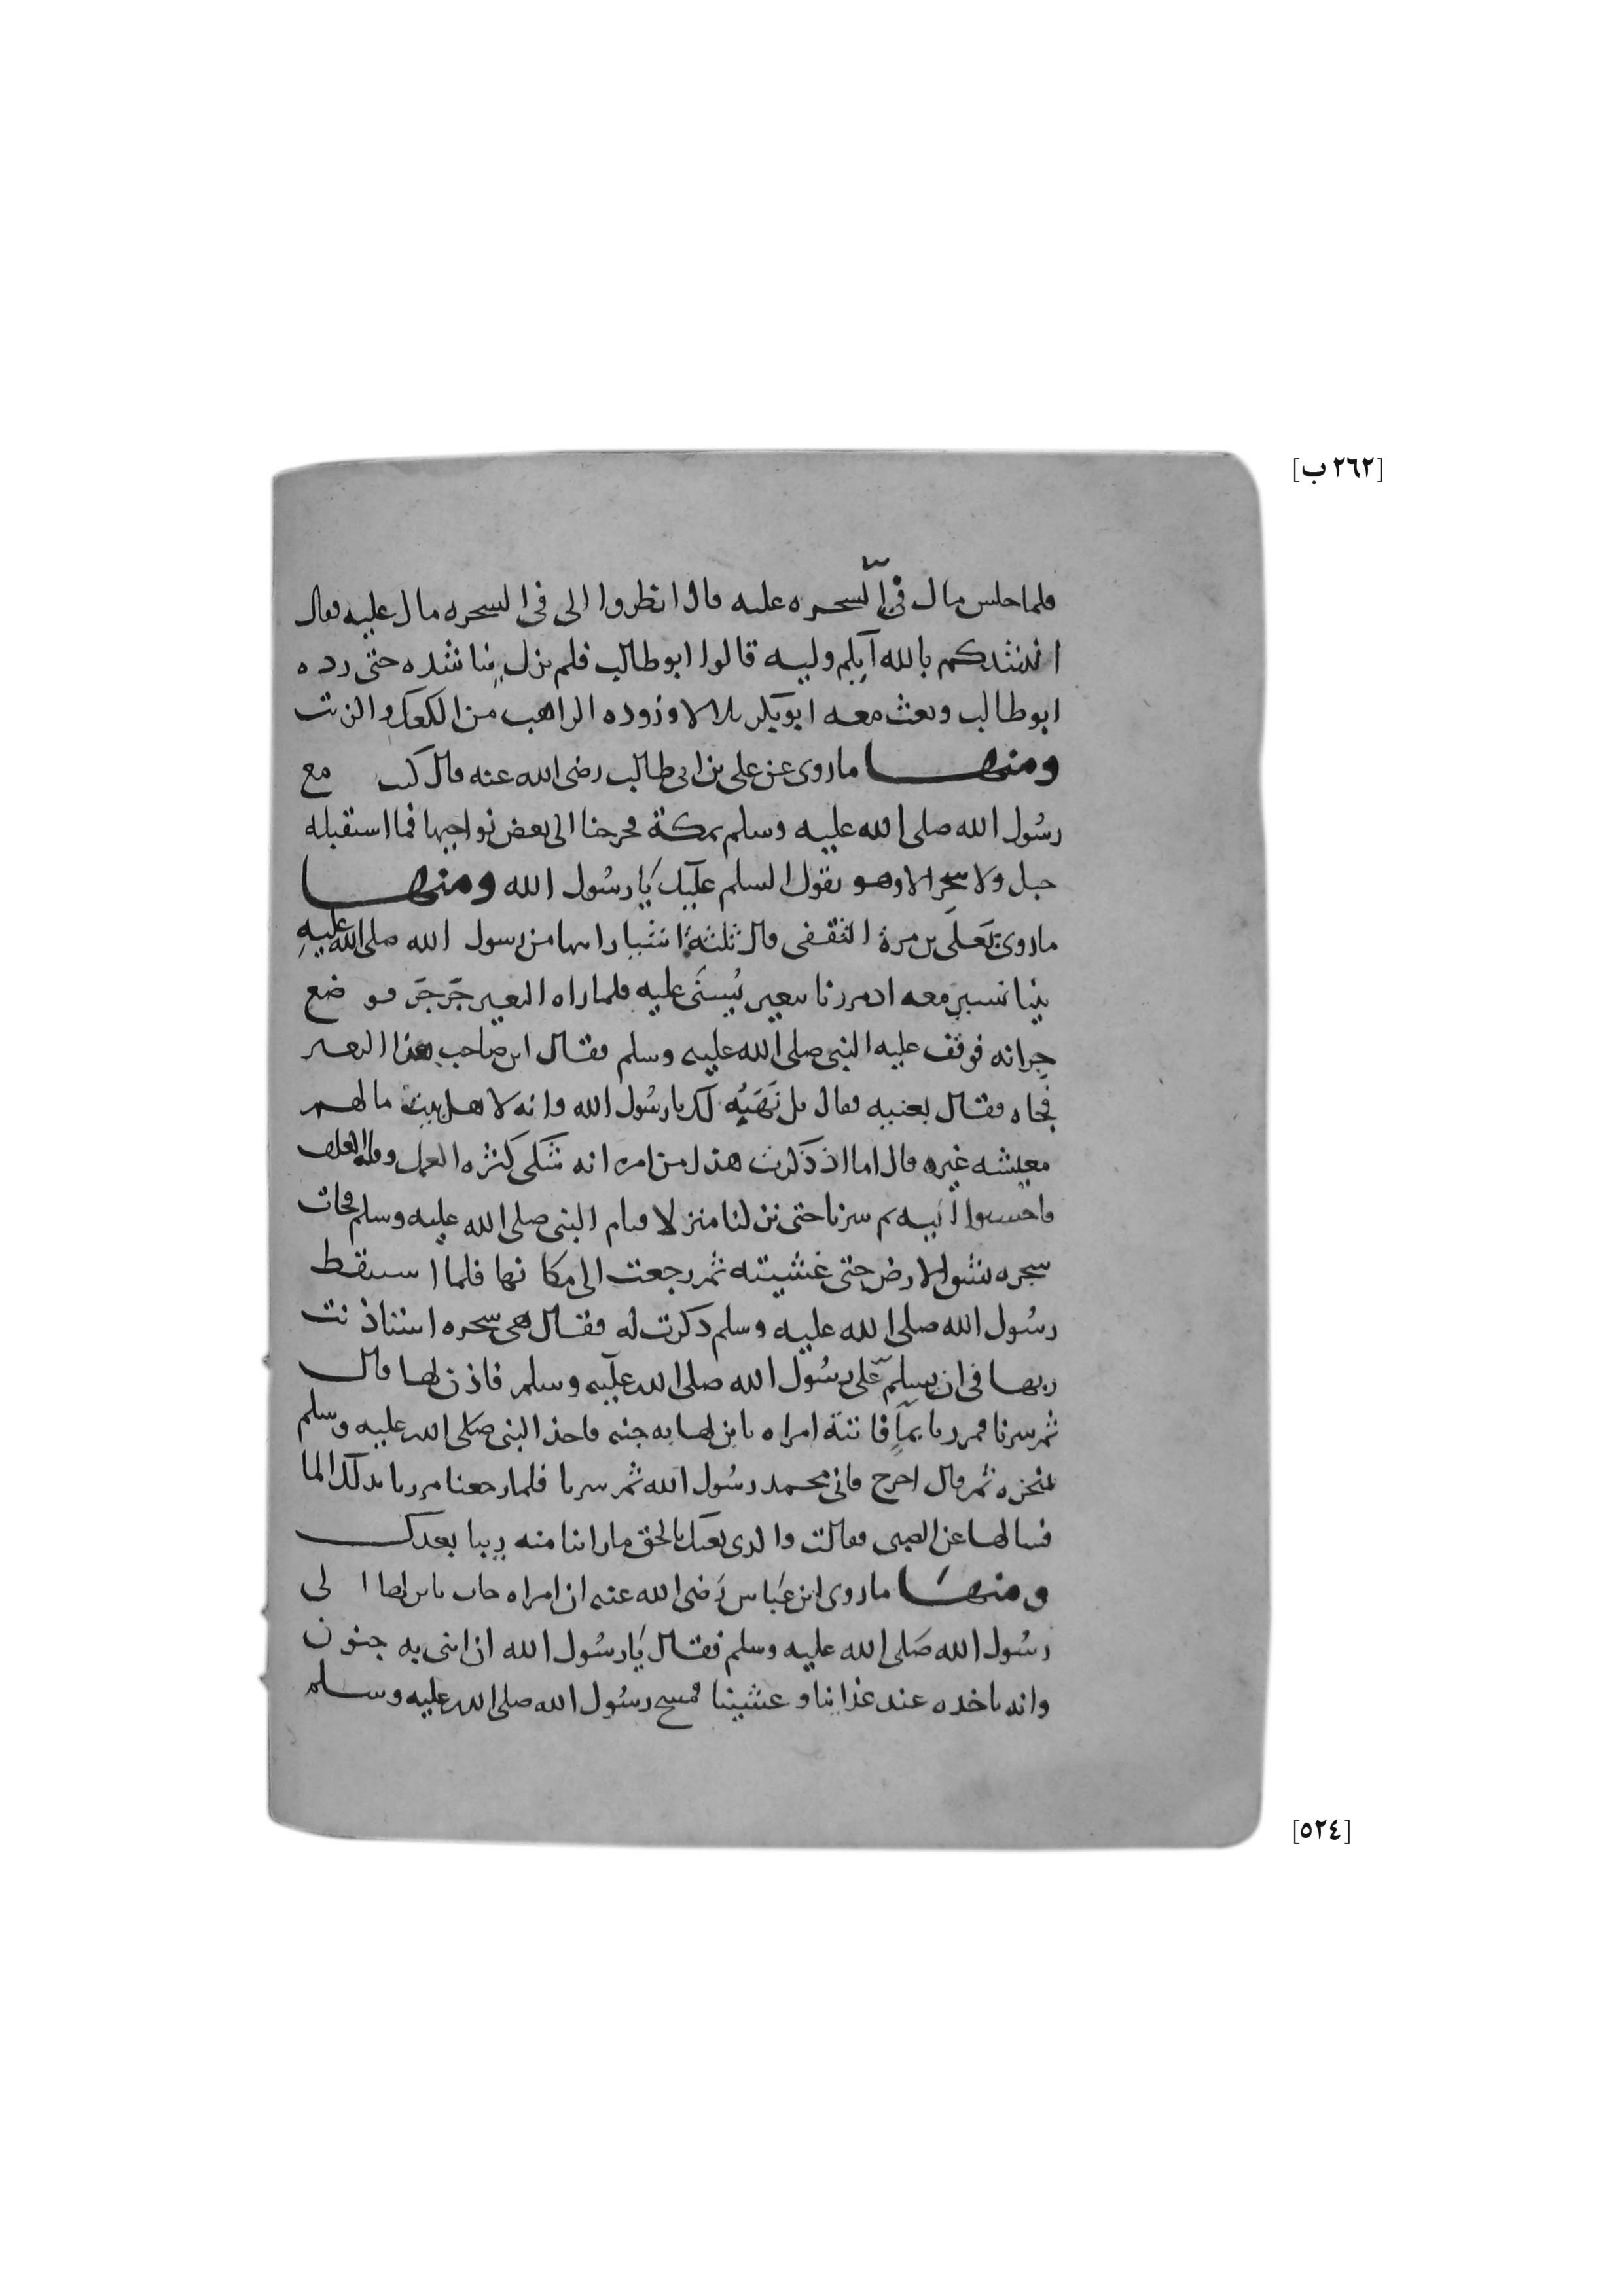 [٢٦٢ ب]
فلما جلس مال فئ الشجره عليه قال انظروا الى فئ الشجره مال عليه فقال
انشدكم بالله ايكم وليه قالوا ابو طالب فلم يزل يناشده حتى رده
ابو طالب وبعث معه ابو بكر بلالا وزوده الراهب من الكعك والزيت
ومنها ما روى عن على بن ابى طالب رضى الله عنه قال كنت مع
رسُول الله صلى الله عليه وسلم بمكة فخرجنا الى بعض نواحيها فما استقبله
جبل ولا شجر الا وهو يقول السلم عليك يَا رسُول الله ومنها
ما روى يَعلَى بن مرة الثقفى قال ثلثة اشيا رايتها من رسول الله صلى الله عليهِ
بينا نسير معه اذ مررنا ببعير يُسنَى عليه فلما راه البعير جَرجَرَ فوضع
جِرانه فوقف عليه النبى صلى الله عليه وسلم فقال اين صاحب هذا البعير
فجاه فقال بعنيه فقال بل نَهَبُه لك يا رسُول الله وانه لاهل بيت ما لهم
معيشه غيره قال اما اذ ذَكرت هذا من امره انه شكى كثره العمل وقله العلف
فاحسنوا اليه ثم سرنا حتى نزلنا منزلا فنام النبى صلى الله عليه وسلم فجات
شجره تشق الارض حتى غشيته ثم رجعت الى مكانها فلما استيقظ
رسُول الله صلى الله عليه وسلم ذكرت له فقال هى شجره استاذنت
ربها فى ان يسلم على رسُول الله صلى الله عليه وسلم فاذن لها قال
ثم سرنا فمررنا بماٍ فاتته امراه بابن لها به جنه فاخذ النبى صَلى الله عليه وسلم
بمنخره ثم قال اخرج فانى محمد رسُول الله ثم سرنا فلما رجعنا مررنا بذلك الما
فسالها عن الصبى فقالت والذى بعثك بالحق ما راينا منه ريبا بعدك
ومنها ما روى ابن عَباس رَضى الله عنه ان امراه جات بابن لها الى
رسُول الله صَلى الله عليه وسلم فقال يَا رسُول الله ان ابنى به جنون
وانه ياخذه عند غذاينا وعشينا فمسح رسُول الله صلى الله عليه وسلم
[٥٢٤]